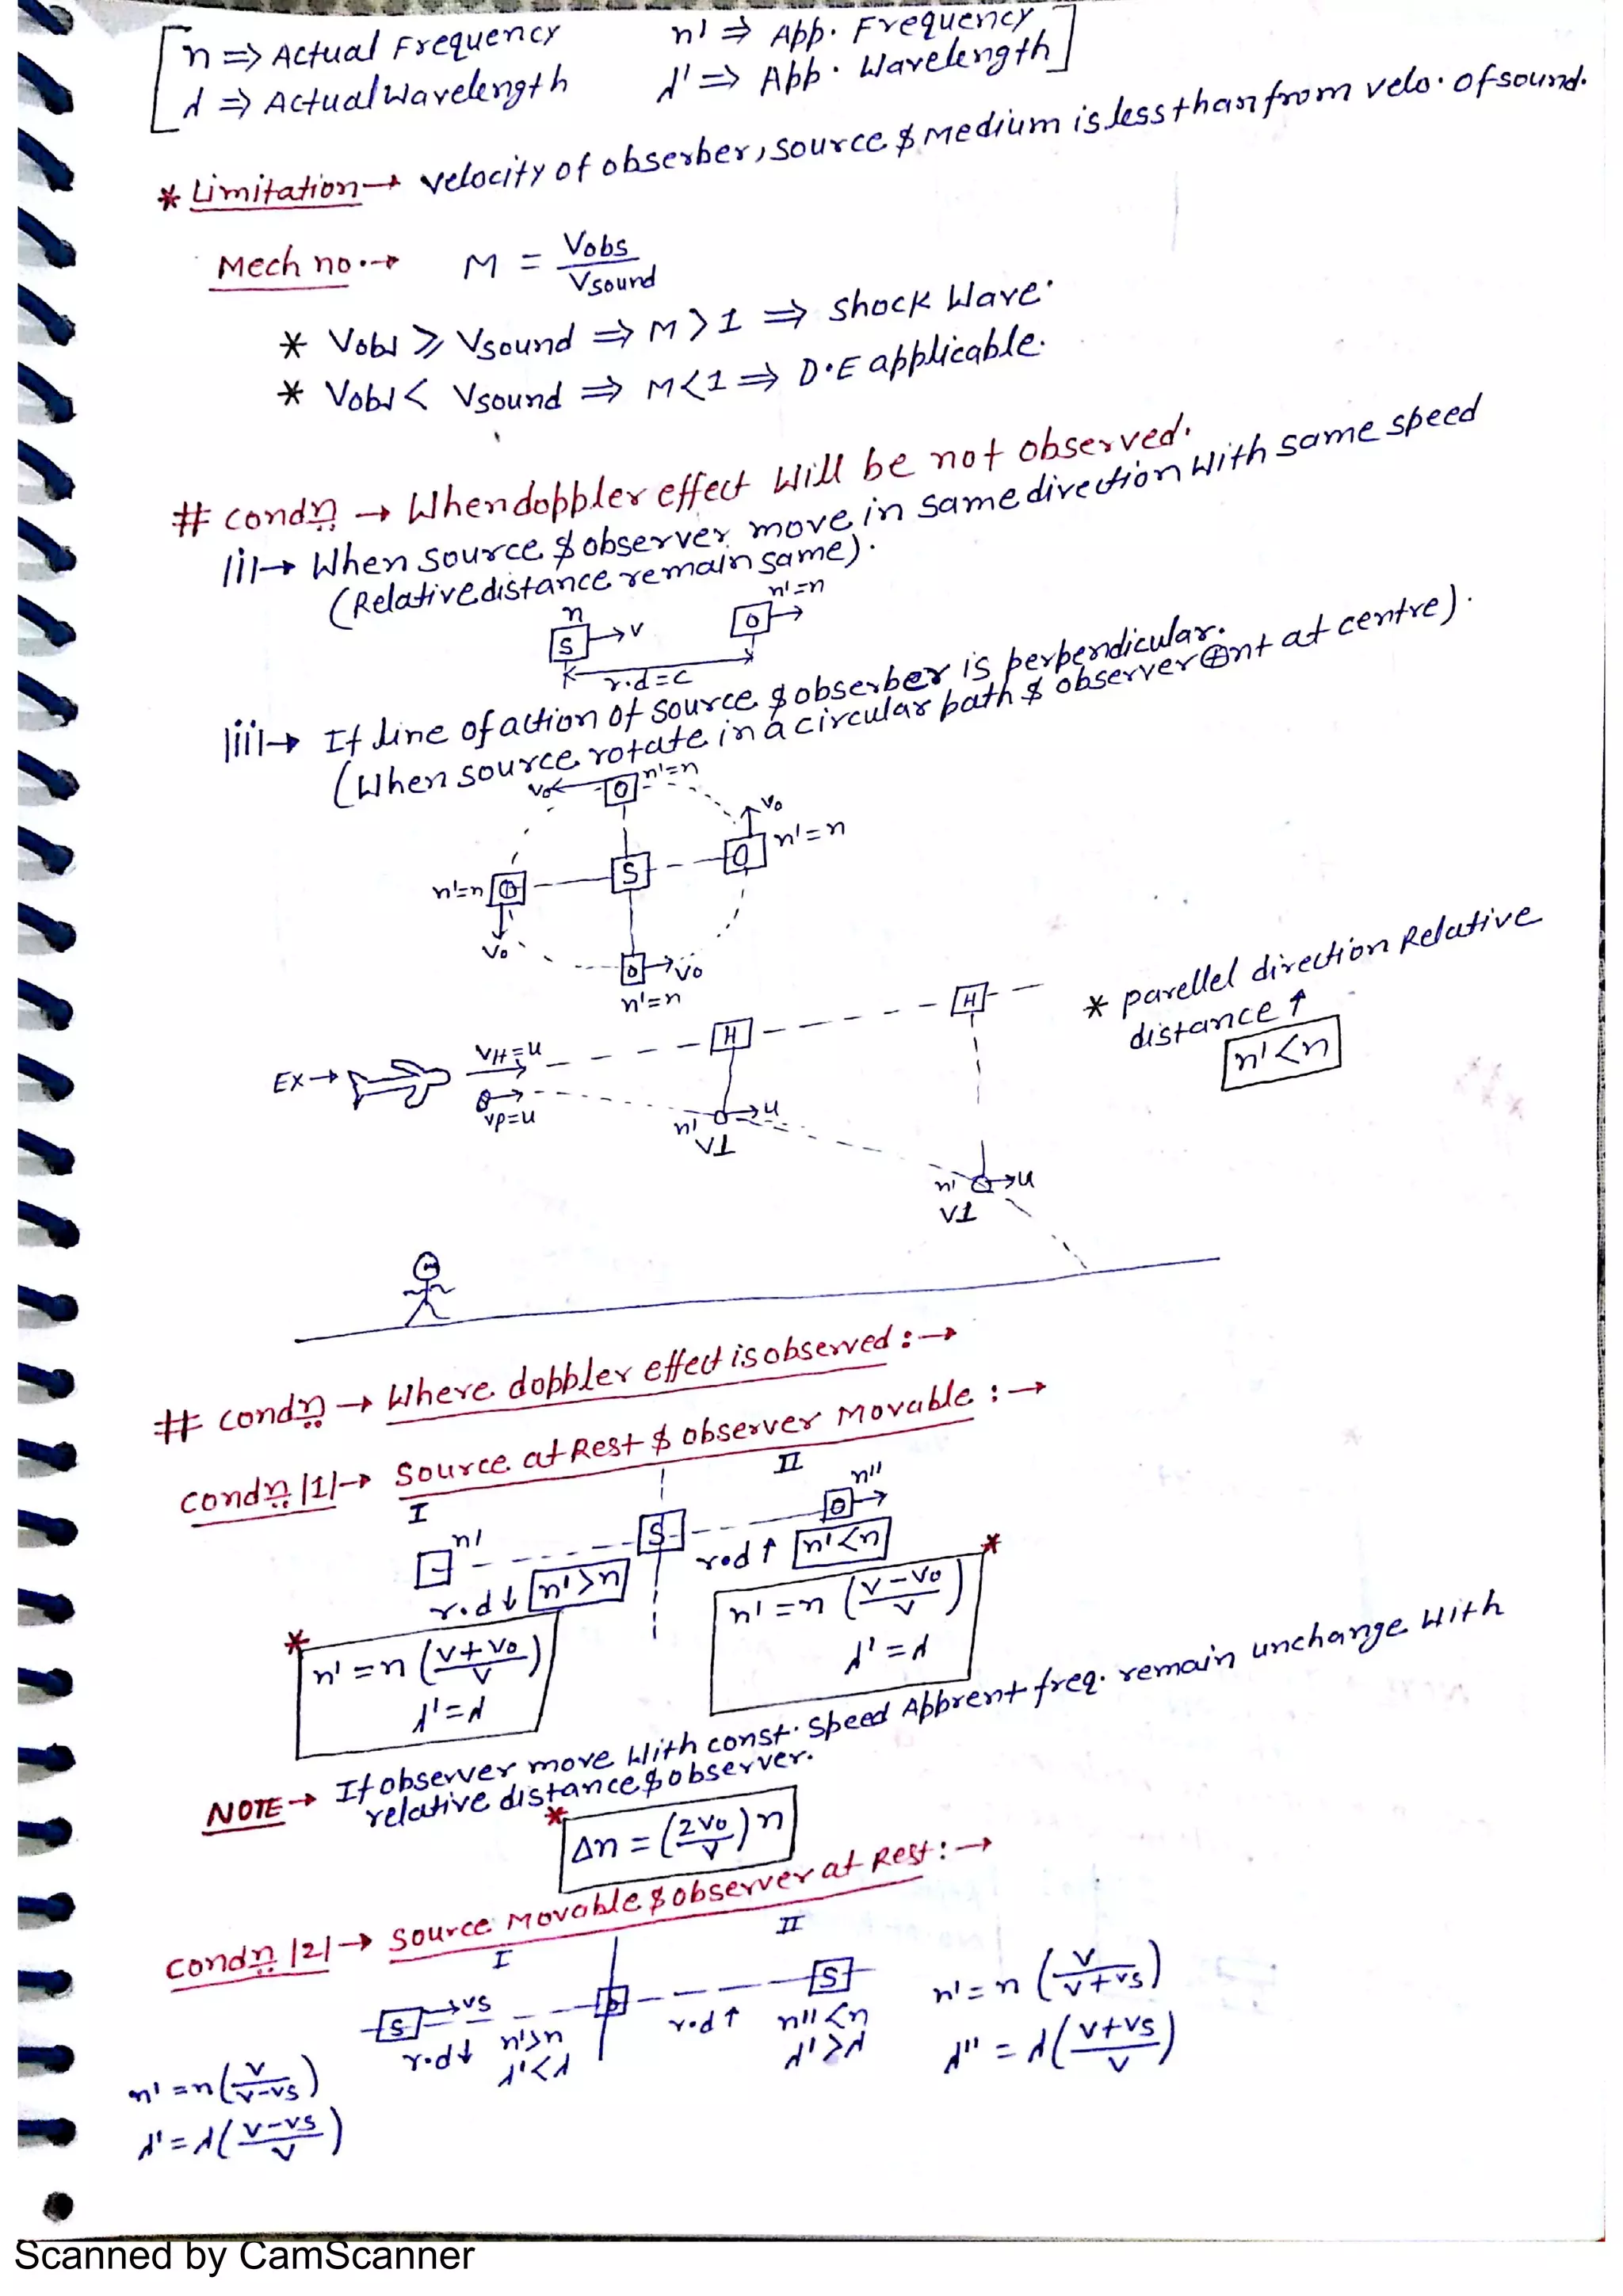 [n ⇒ Actual Frequency n' ⇒ App. Frequency
λ ⇒ Actual Wavelength λ' ⇒ App. Wavelength]
* Limitation → velocity of obserber, source & Medium is less than from velo. of sound.
Mech no. → M = Vobs / Vsound
* Vobs ≥ Vsound ⇒ M > 1 ⇒ Shock Wave.
* Vobs < Vsound ⇒ M < 1 ⇒ D.E applicable.
# condn → When doppler effect Will be not observed.
|i|→ When source & observer move in same direction With same speed
(Relative distance remain same).
n n'=n
S → v O →
r.d = c
|ii|→ If line of action of source & obserber is perpendicular.
(When source rotate in a circular path & observer at centre).
Vo ← O n'=n
Vo
n'=n O S O n'=n
Vo
O → Vo
n'=n
* parellel direction Relative
distance ↑
n' < n
Ex → VH = u H H
VP = u
n' → u
V⊥
n' → u
V⊥
# condn → Where doppler effect is observed : →
condn |1|→ Source at Rest & observer Movable : →
I II
n' S O → n''
r.d ↓ n' > n r.d ↑ n' < n
* n' = n (V + Vo / V)
λ' = λ
* n' = n (V - Vo / V)
λ' = λ
NOTE → If observer move With const. speed Apprent freq. remain unchange With
relative distance & observer.
* Δn = (2Vo / V) n
condn |2|→ Source Movable & observer at Rest : →
I II
S → vs O S
r.d ↓ n' > n r.d ↑ n'' < n
λ' < λ λ' > λ
n' = n (V / V + Vs)
λ'' = λ (V + Vs / V)
n' = n (V / V - Vs)
λ' = λ (V - Vs / V)
Scanned by CamScanner